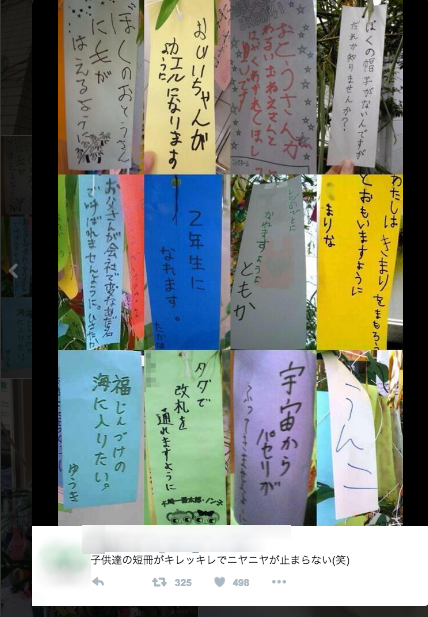 ぼくのおとうさん
に毛が
はえるように
おじいちゃんが
カエルになります
ように
おとうさんが
ぼくの帽子がないんですが
だれか知りませんか?
お父さんが会社で変なあだ名
で呼ばれませんように。
2年生に
なれます。
なれますように
ともか
わたしは きまりをまもろう
とおもいますように
まりな
福じんづけの
海に入りたい。
ゆうき
タダで
改札を
通れますように
宇宙から
パセリが
ふってきますように
うんこ
子供達の短冊がキレッキレでニヤニヤが止まらない(笑)
325
498